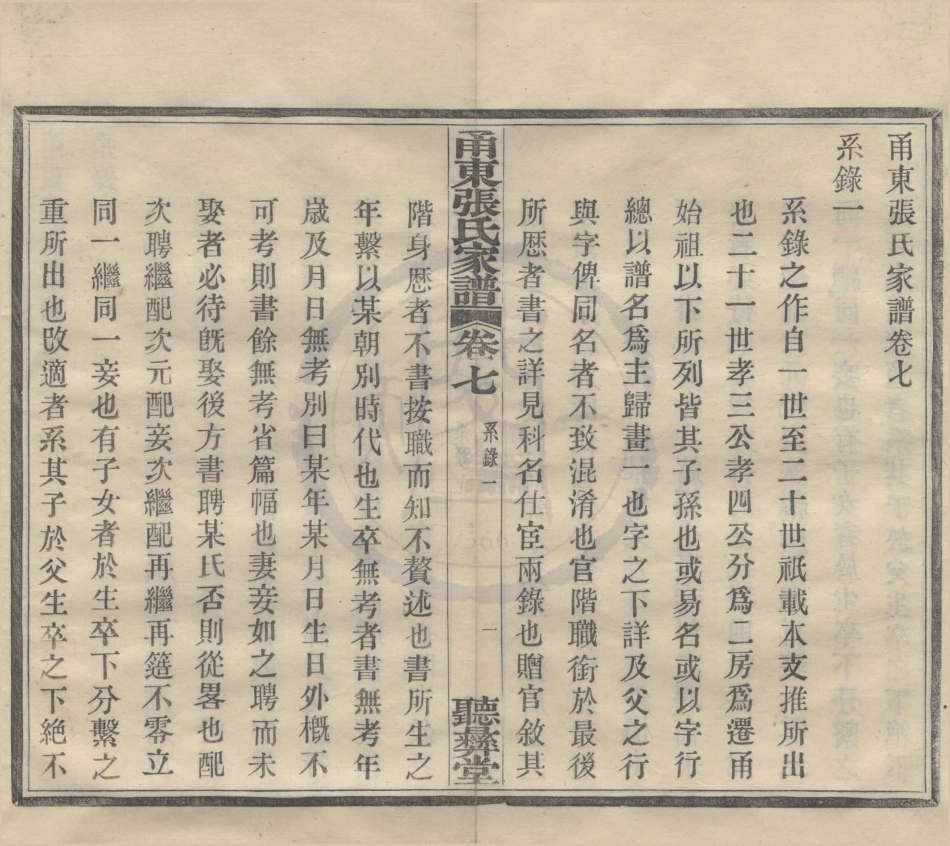 甬東張氏家譜卷七
系錄一
系錄之作自一世至二十世祇載本支推所出
也二十一世孝三公孝四公分爲二房爲遷甬
始祖以下所列皆其子孫也或易名或以字行
總以譜名爲主歸畫一也字之下詳及父之行
與字俾同名者不致混淆也官階職銜於最後
所歷者書之詳見科名仕宦兩錄也贈官敘其
甬東張氏家譜 卷七 系錄一 一 聽彝堂
階身歷者不書按職而知不贅述也書所生之
年繫以某朝別時代也生卒無考者書無考年
歲及月日無考別曰某年某月日生日外槪不
可考則書餘無考省篇幅也妻妾如之聘而未
娶者必待旣娶後方書聘某氏否則從畧也配
次聘繼配次元配妾次繼配再繼再簉不零立
同一繼同一妾也有子女者於生卒下分繫之
重所出也改適者系其子於父生卒之下絶不